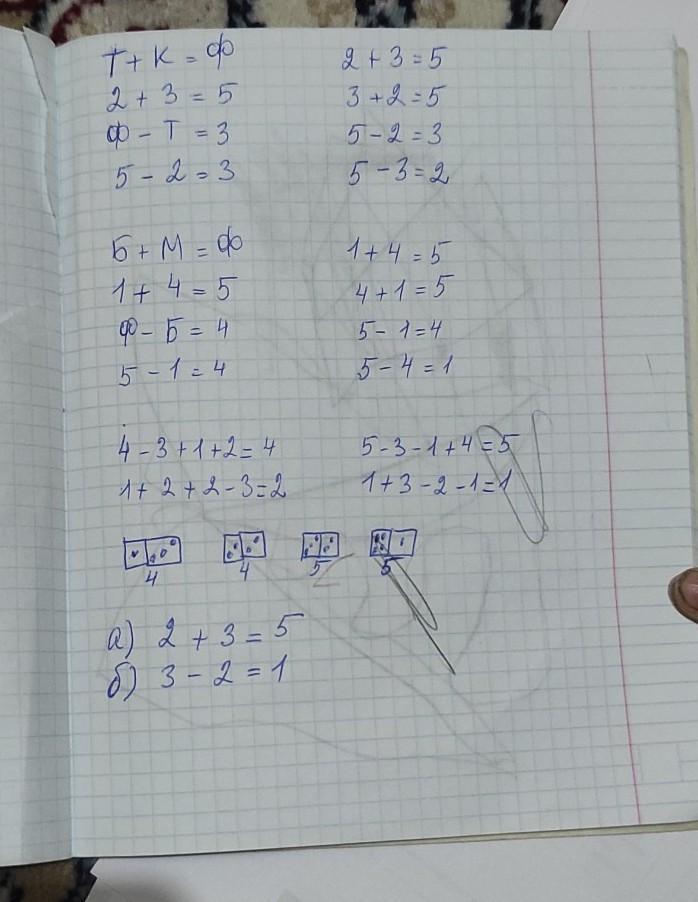 Т + К = Ф
2 + 3 = 5
Ф - Т = 3
5 - 2 = 3
2 + 3 = 5
3 + 2 = 5
5 - 2 = 3
5 - 3 = 2
Б + М = Ф
1 + 4 = 5
Ф - Б = 4
5 - 1 = 4
1 + 4 = 5
4 + 1 = 5
5 - 1 = 4
5 - 4 = 1
4 - 3 + 1 + 2 = 4
1 + 2 + 2 - 3 = 2
5 - 3 - 1 + 4 = 5
1 + 3 - 2 - 1 = 1
4 4 5 5
а) 2 + 3 = 5
б) 3 - 2 = 1